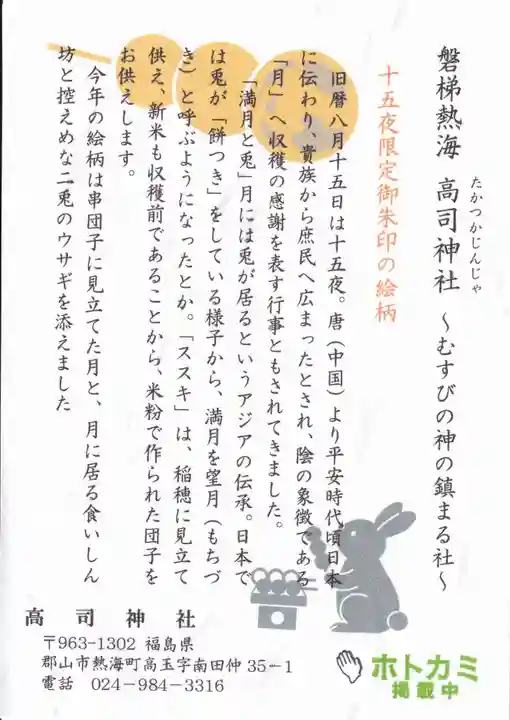 磐梯熱海 高司神社 ～むすびの神の鎮まる社～
たかつかじんじゃ
十五夜限定御朱印の絵柄
旧暦八月十五日は十五夜。唐(中国)より平安時代頃日本
に伝わり、貴族から庶民へ広まったとされ、陰の象徴である
「月」へ収穫の感謝を表す行事ともされてきました。
「満月と兎」月には兎が居るというアジアの伝承。日本で
は兎が「餅つき」をしている様子から、満月を望月(もちづ
き)と呼ぶようになったとか。「ススキ」は、稲穂に見立て
供え、新米も収穫前であることから、米粉で作られた団子を
お供えします。
今年の絵柄は串団子に見立てた月と、月に居る食いしん
坊と控えめな二兎のウサギを添えました
高司神社
〒963-1302 福島県
郡山市熱海町高玉字南田仲35-1
電話 024-984-3316
ホトカミ
掲載中